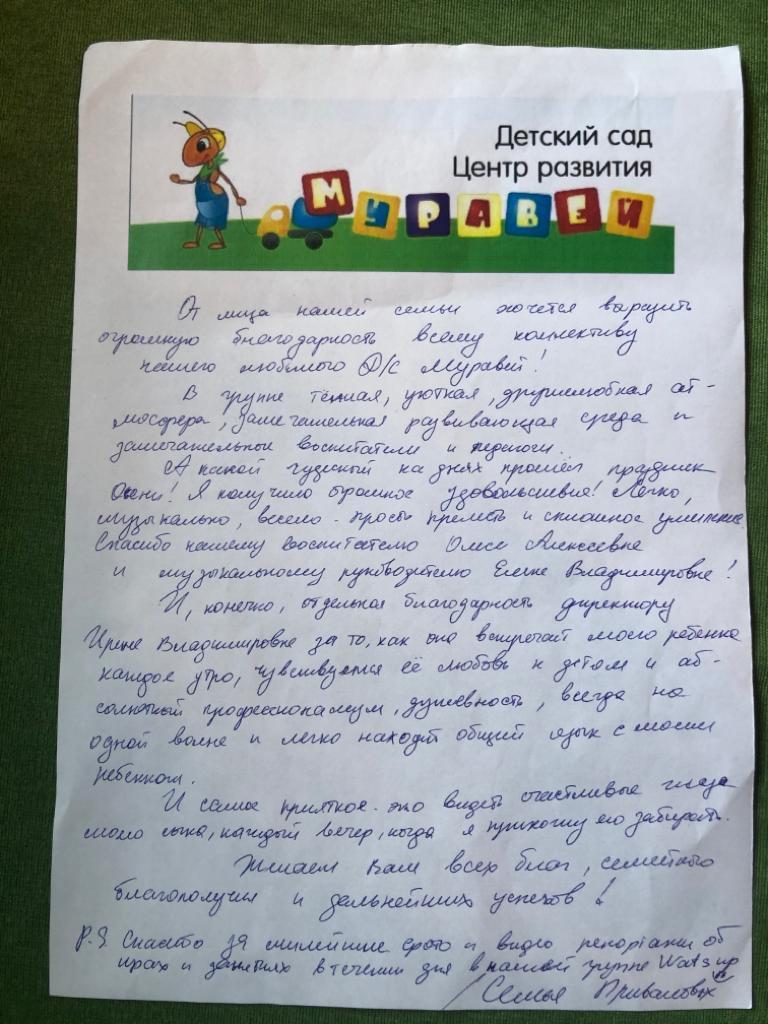 Детский сад
Центр развития
МУРАВЕЙ
От лица нашей семьи хочется выразить
огромную благодарность всему коллективу
нашего любимого Д/С Муравей!
В группе тёплая, уютная, дружелюбная ат-
мосфера, замечательная развивающая среда и
замечательные воспитатели и педагоги.
А какой чудесный на днях прошёл праздник
Осени! Я получила огромное удовольствие! Легко,
музыкально, весело - просто прелесть и сплошное умиление.
Спасибо нашему воспитателю Олесе Алексеевне
и музыкальному руководителю Елене Владимировне!
И, конечно, отдельная благодарность директору
Ирине Владимировне за то, как она встречает моего ребенка
каждое утро, чувствуется её любовь к детям и аб-
солютный профессионализм, душевность, всегда на
одной волне и легко находит общий язык с моим
ребенком.
И самое приятное - это видеть счастливые глаза
моего сына, каждый вечер, когда я прихожу его забирать.
Желаем Вам всех благ, семейного
благополучия и дальнейших успехов!
P.S. Спасибо за милейшие фото и видео репортажи об
играх и занятиях в течении дня в нашей группе Watsup
Семья Приваловых